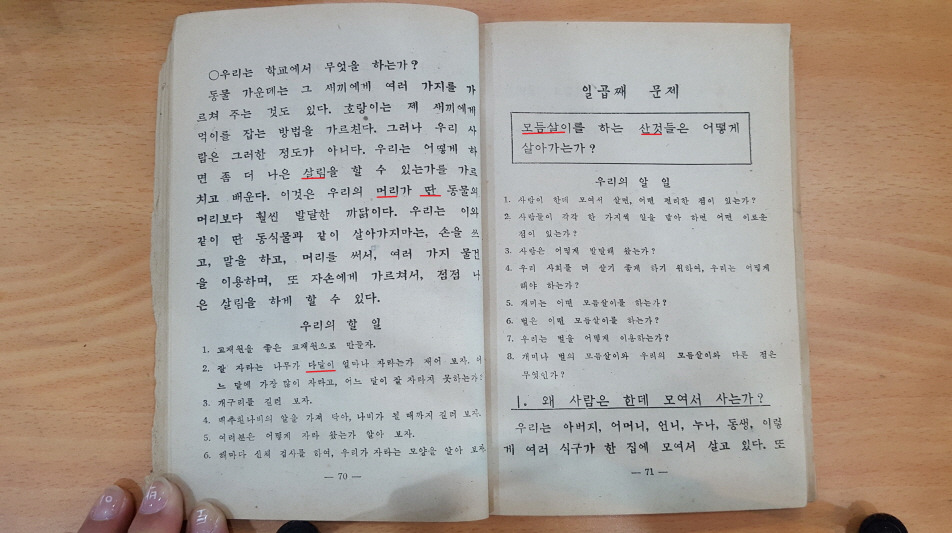 ○우리는 학교에서 무엇을 하는가?
동물 가운데는 그 새끼에게 여러 가지를 가
르쳐 주는 것도 있다. 호랑이는 제 새끼에게
먹이를 잡는 방법을 가르친다. 그러나 우리 사
람은 그러한 정도가 아니다. 우리는 어떻게 하
면 좀 더 나은 살림을 할 수 있는가를 가르
치고 배운다. 이것은 우리의 머리가 딴 동물의
머리보다 훨씬 발달한 까닭이다. 우리는 이와
같이 딴 동식물과 같이 살아가지마는, 손을 쓰
고, 말을 하고, 머리를 써서, 여러 가지 물건
을 이용하며, 또 자손에게 가르쳐서, 점점 나
은 살림을 하게 할 수 있다.
우리의 할 일
1. 교재원을 좋은 교재원으로 만들자.
2. 잘 자라는 나무가 다달이 얼마나 자라는가 재어 보자. 어
느 달에 가장 많이 자라고, 어느 달이 잘 자라지 못하는가?
3. 개구리를 길러 보자.
4. 배추흰나비의 알을 가져 다가, 나비가 될 때까지 길러 보자.
5. 여러분은 어떻게 자라 왔는가 알아 보자.
6. 해마다 신체 검사를 하여, 우리가 자라는 모양을 알아 보자.
— 70 —
일곱째 문제
모듬살이를 하는 산것들은 어떻게
살아가는가?
우리의 알 일
1. 사람이 한데 모여서 살면, 어떤 편리한 점이 있는가?
2. 사람들이 각각 한 가지씩 일을 맡아 하면 어떤 이로운
점이 있는가?
3. 사람은 어떻게 발달해 왔는가?
4. 우리 사회를 더 살기 좋게 하기 위하여, 우리는 어떻게
해야 하는가?
5. 개미는 어떤 모듬살이를 하는가?
6. 벌은 어떤 모듬살이를 하는가?
7. 우리는 벌을 어떻게 이용하는가?
8. 개미나 벌의 모듬살이와 우리의 모듬살이와 다른 점은
무엇인가?
1. 왜 사람은 한데 모여서 사는가?
우리는 아버지, 어머니, 언니, 누나, 동생, 이렇
게 여러 식구가 한 집에 모여서 살고 있다. 또
— 71 —